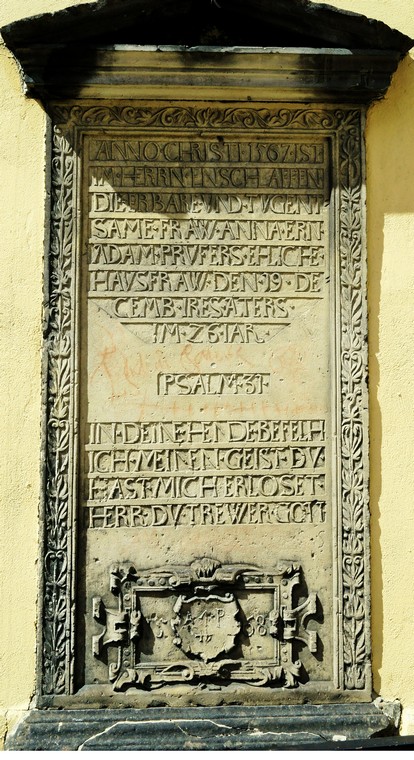 ANNO·CHRISTI·1567·IST
IM·HERRN·ENSCHLAFFEN
DIE·ERBARE·VND·TVGENT
SAME·FRAW·ANNA·ERN
ADAM·PRVFERS·EHLICHE
HAVSFRAW·DEN·19·DE
CEMB·IRES·ATERS·
IM·26·IAR·
PSALM·31·
IN·DEINE·HENDE·BEFELH
ICH·MEINEN·GEIST·DV·
HAST·MICH·ERLOSET·
HERR·DV·TREWER·GOTT